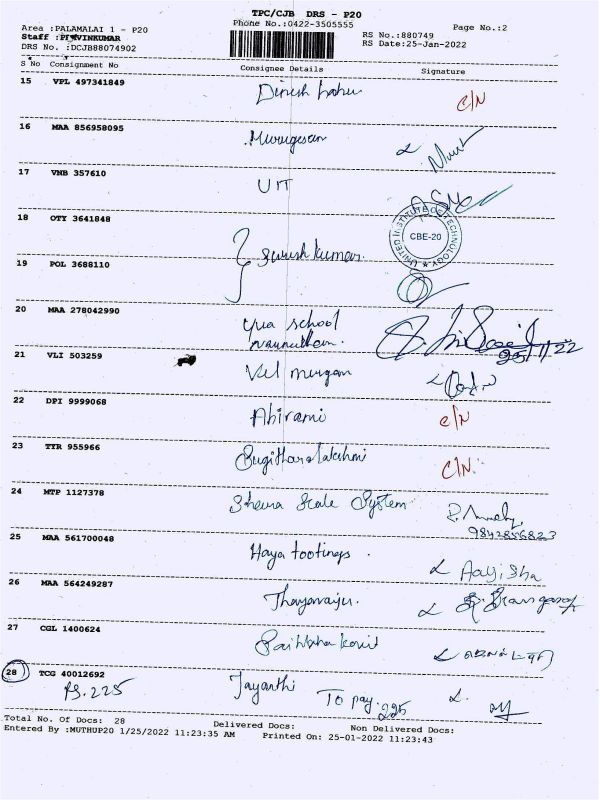 TPC/CJB DRS - P20
Area :PALAMALAI 1 - P20 Phone No.:0422-3505555 Page No.:2
Staff : RS No.:880749
DRS No. :DCJB88074902 RS Date:25-Jan-2022
S No Consignment No Consignee Details Signature
15 VPL 497341849 Dinesh C/N
16 MAA 856958095 Murugesan
17 VNB 357610 UIT
UNITED INSTITUTE OF TECHNOLOGY
CBE-20
18 OTY 3641848
Suresh kumar
19 POL 3688110
20 MAA 278042990 Yua school
25/1/22
21 VLI 503259 Vel murgan
22 DPI 9999068 Abirami C/N
23 TYR 955966 C/N
24 MTP 1127378 Scale System
9842856823
25 MAA 561700048 Haya footings . Aayisha
26 MAA 564249287
27 CGL 1400624
28 TCG 40012692 Jayanthi
RS. 225 To pay. 225
Total No. Of Docs: 28 Delivered Docs: Non Delivered Docs:
Entered By :MUTHUP20 1/25/2022 11:23:35 AM Printed On: 25-01-2022 11:23:43